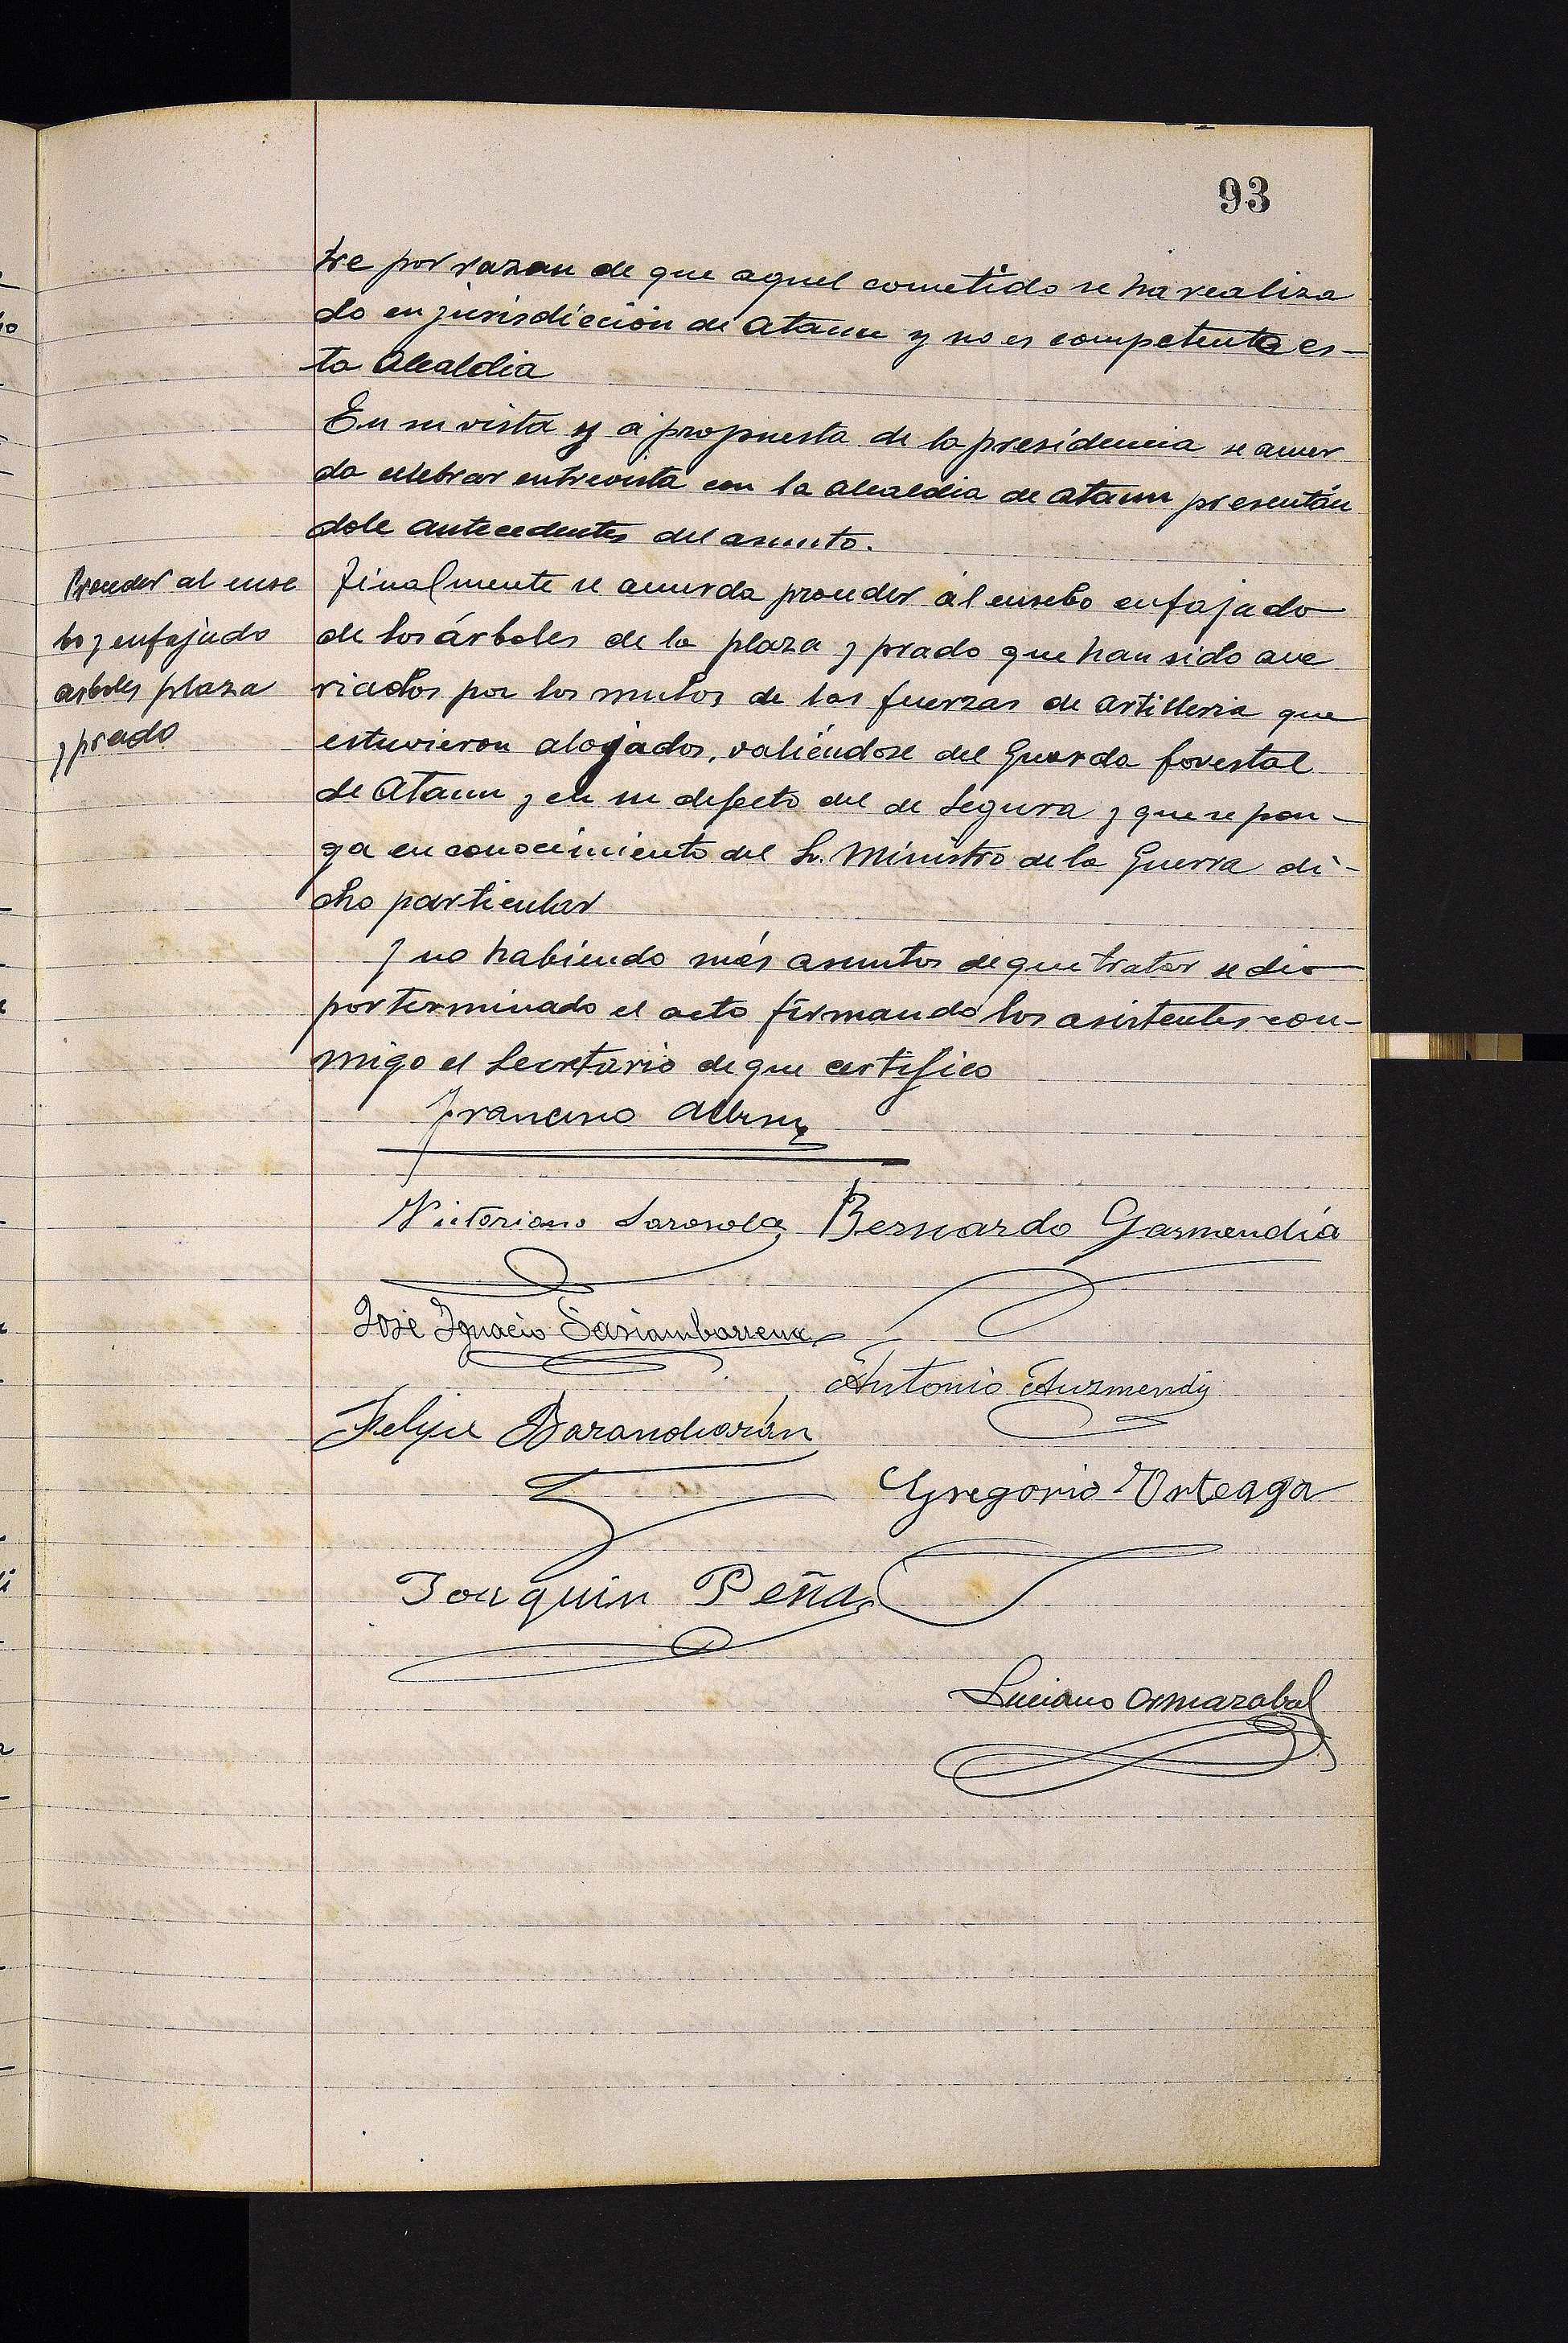 93
tre por razon de que aquel cometido se ha realiza
do en jurisdicción de Ataun y no es competente es-
ta Alcaldia
En su vista y á propuesta de la presidencia se acuer
da celebrar entrevista con la alcaldia de Ataun presentán
dole antecedentes del asunto.
Proceder al ense
bo y enfajado
arboles plaza
y prado
Finalmente se acuerda proceder al ensebo enfajado
de los árboles de la plaza y prado que han sido ave
riados por los mulos de las fuerzas de artilleria que
estuvieron alojados, valiéndose del Guarda forestal
de Ataun y en su defecto del de Segura y que se pon-
ga en conocimiento del Sr. Ministro de la Guerra di-
cho particular
Y no habiendo más asuntos de que tratar se dio
por terminado el acto firmando los asistentes con-
migo el Secretario de que certifico
Francisco
Victoriano Sarasola Bernardo Garmendia
José Ignacio Sasiambarrena
Antonio Auzmendi
Felipe Barandiarán
Gregorio Urteaga
Joaquin Peña
Luciano Ormazabal